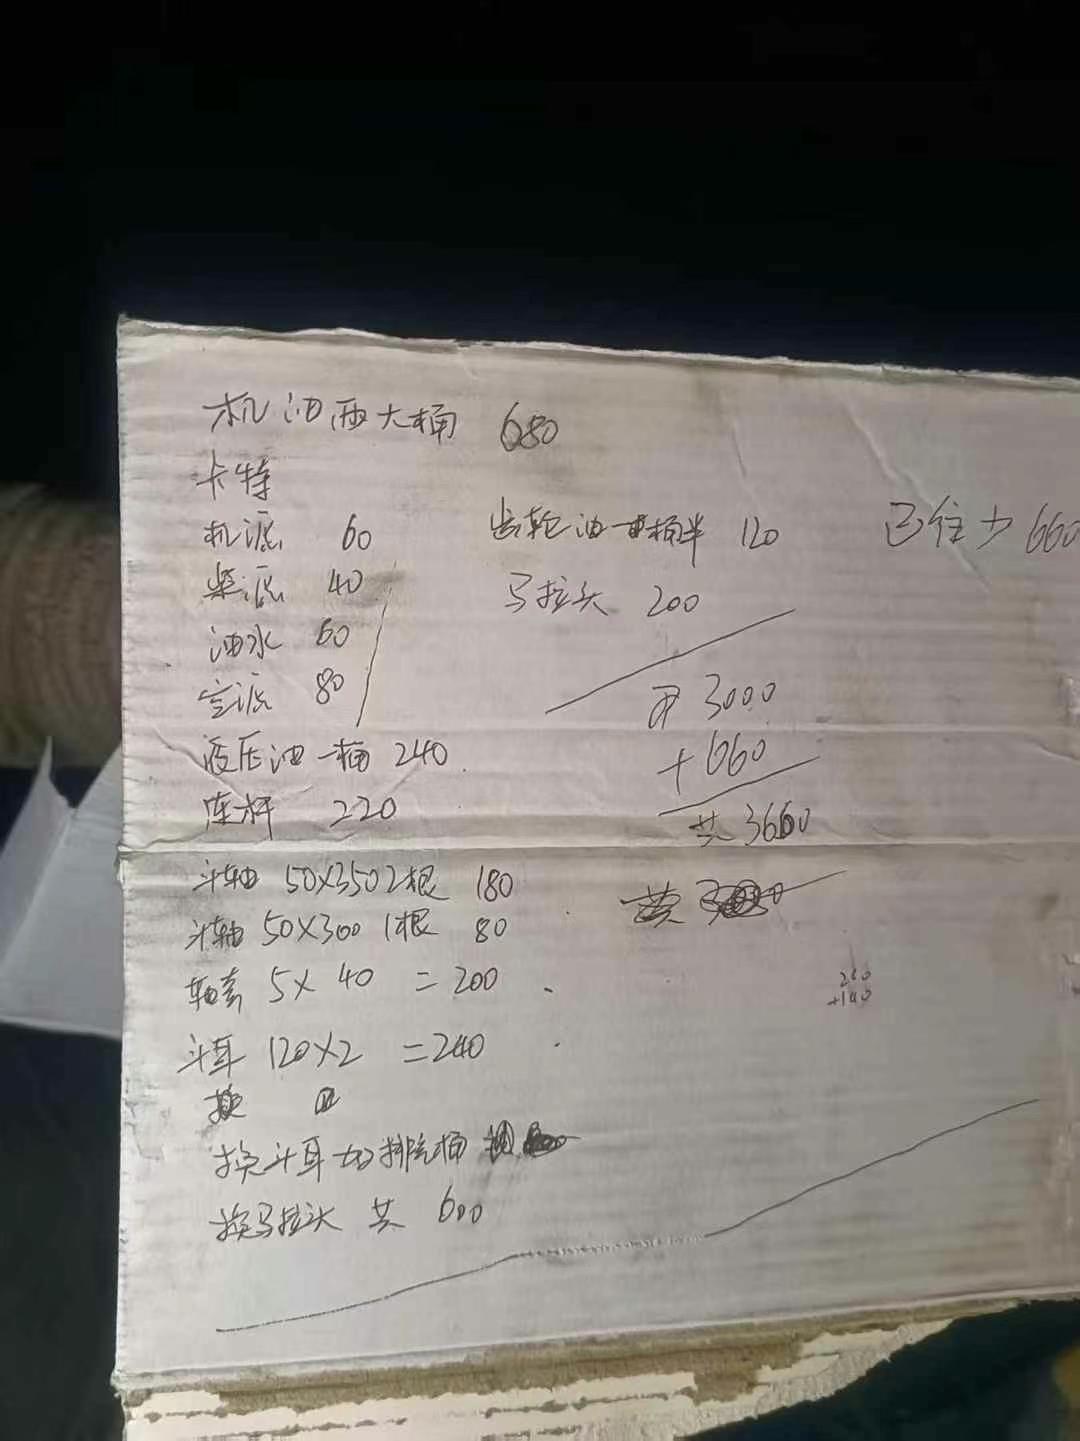 机油两大桶 680
卡特
机滤 60
柴滤 40
油水 60
空滤 80
液压油一桶 240
连杆 220
斗轴 50X350 2根 180
斗轴 50X300 1根 80
轴套 5X40 =200
斗耳 120X2 =240
换
换斗耳 排气桶
换马拉头 共 600
齿轮油 桶半 120
马拉头 200
3000
+660
共3660
共
已往 660
+140